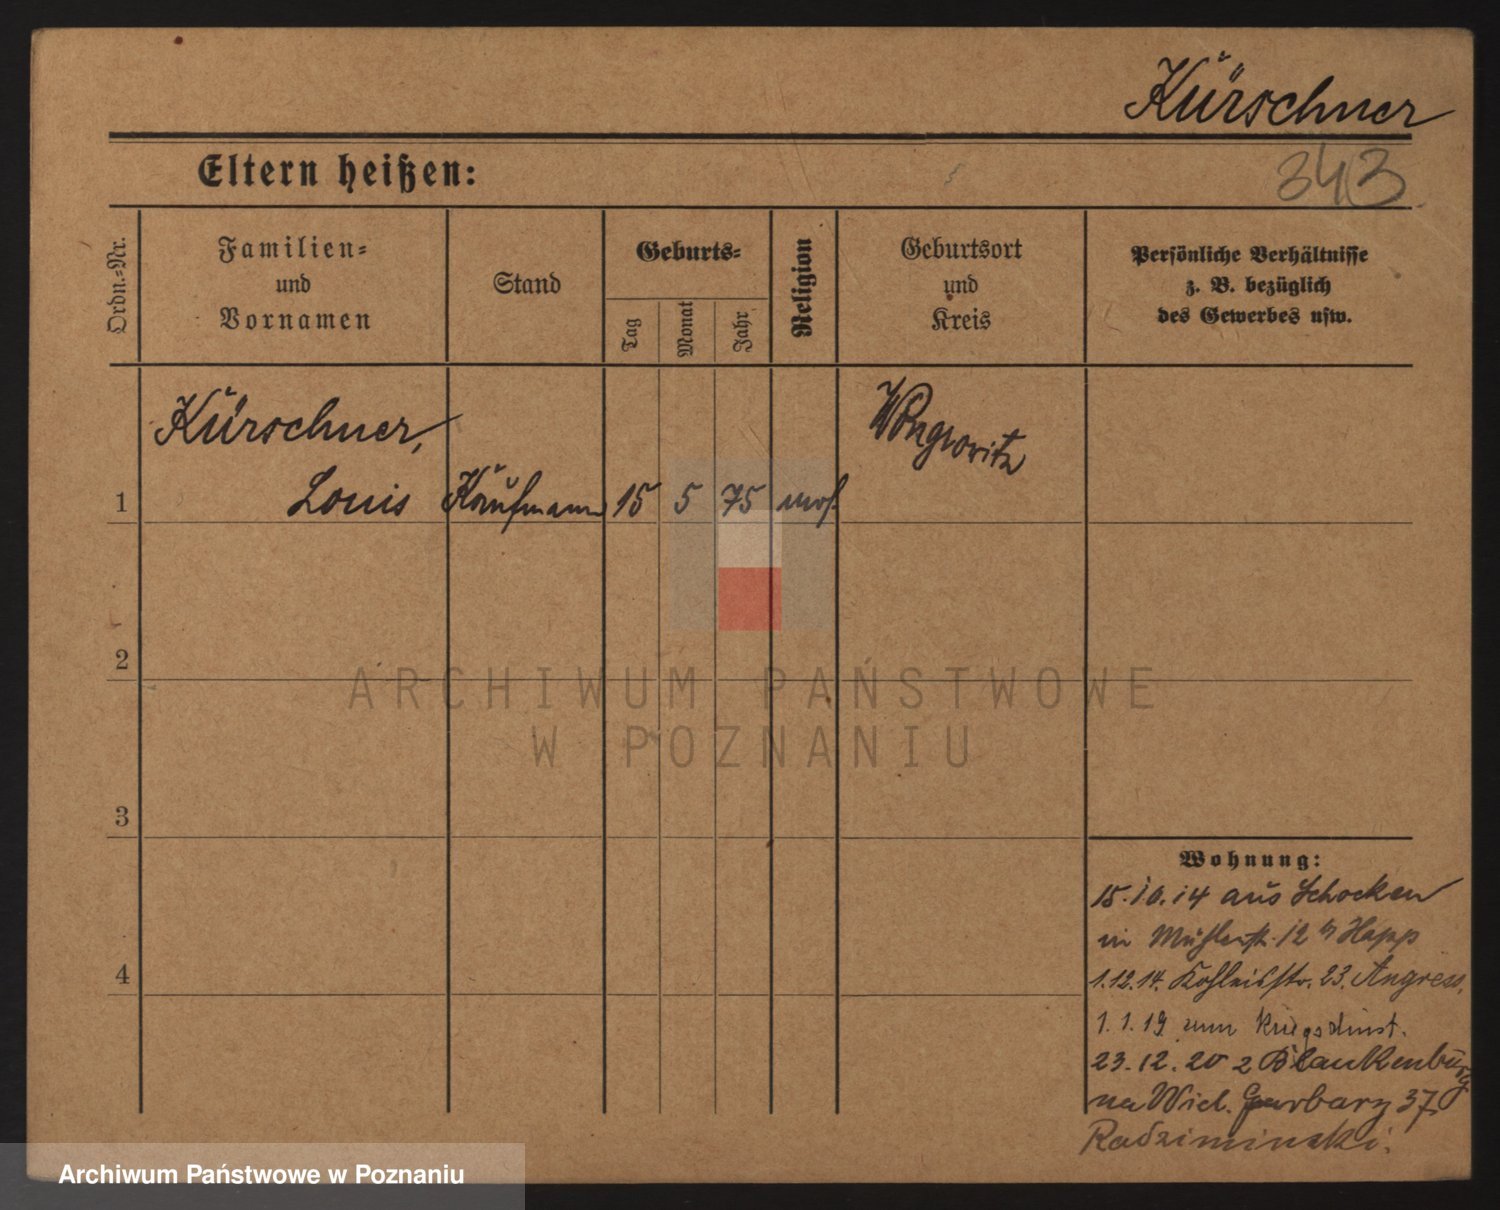 Kürschner
Eltern heißen:
343
Ordn.-Nr.
Familien-
und
Vornamen
Stand
Geburts-
Tag
Monat
Jahr
Religion
Geburtsort
und
Kreis
Persönliche Verhältnisse
z. B. bezüglich
des Gewerbes usw.
1
Kürschner,
Louis
Kaufmann
15
5
75
mos
Wongrowitz
2
3
4
Wohnung:
15.10.14 aus Schocken
in Mühlenstr. 12 b/ Happ
1.12.14. Kohleisstr. 23. Angress.
1.1.19 zum Kriegsdinst.
23.12.20 z Blankenburg
na Wiel. Garbary 37.
Radziminski.
ARCHIWUM PAŃSTWOWE
W POZNANIU
Archiwum Państwowe w Poznaniu